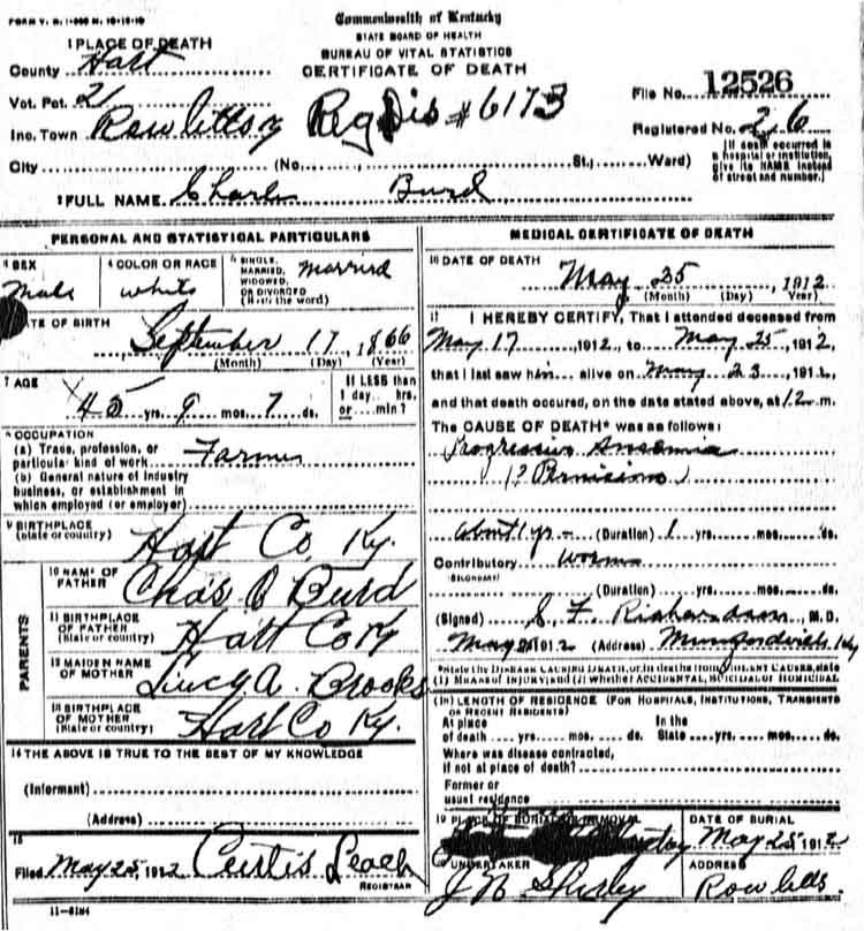 FORM V. S. 1-
Commonwealth of Kentucky
STATE BOARD OF HEALTH
BUREAU OF VITAL STATISTICS
CERTIFICATE OF DEATH
1 PLACE OF DEATH
County Hart
Vot. Pct. 21
Inc. Town Reg Dis # 6173
City (No. St.; Ward)
File No. 12526
Registered No. 26
[If death occurred in
a hospital or institution,
give its NAME instead
of street and number.]
2 FULL NAME Burd
PERSONAL AND STATISTICAL PARTICULARS
3 SEX
Male
4 COLOR OR RACE
white
5 SINGLE,
MARRIED,
WIDOWED,
OR DIVORCED
(Write the word)
Married
ATE OF BIRTH
September 17, 1866
(Month) (Day) (Year)
7 AGE
45 yrs. 9 mos. 7 ds.
If LESS than
1 day hrs.
or min?
8 OCCUPATION
(a) Trade, profession, or
particular kind of work Farmer
(b) General nature of industry
business, or establishment in
which employed (or employer)
9 BIRTHPLACE
(State or country) Hart Co Ky.
PARENTS
10 NAME OF
FATHER
Chas Burd
11 BIRTHPLACE
OF FATHER
(State or country) Hart Co Ky
12 MAIDEN NAME
OF MOTHER
Lucy A. Brooks
13 BIRTHPLACE
OF MOTHER
(State or country) Hart Co Ky.
14 THE ABOVE IS TRUE TO THE BEST OF MY KNOWLEDGE
(Informant)
(Address)
15
Filed May 25, 1912 Curtis Leach
REGISTRAR
11-5184
MEDICAL CERTIFICATE OF DEATH
16 DATE OF DEATH
May 25, 1912
(Month) (Day) Year)
17 I HEREBY CERTIFY, That I attended deceased from
May 17, 1912, to May 25, 1912,
that I last saw him alive on May 23, 1912,
and that death occured, on the date stated above, at 12 m.
The CAUSE OF DEATH* was as follows:
Progressive Anaemia
about 1 yr - (Duration) 1 yrs. mos. ds.
Contributory worms
SECONDARY
(Duration) yrs. mos. ds.
(Signed) Richardson, M.D.
1912 (Address) Munfordville Ky
*State the DISEASE CAUSING DEATH, or, in deaths from VIOLENT CAUSES, state
(1) MEANS OF INJURY; and (2) whether ACCIDENTAL, SUICIDAL or HOMICIDAL
(18) LENGTH OF RESIDENCE (FOR HOSPITALS, INSTITUTIONS, TRANSIENTS
OR RECENT RESIDENTS)
At place In the
of death yrs. mos. ds. State yrs. mos. ds.
Where was disease contracted,
if not at place of death?
Former or
usual residence
19 PLACE OF BURIAL OR REMOVAL
DATE OF BURIAL
May 25, 1912
UNDERTAKER
Shirley
ADDRESS
Rowletts.